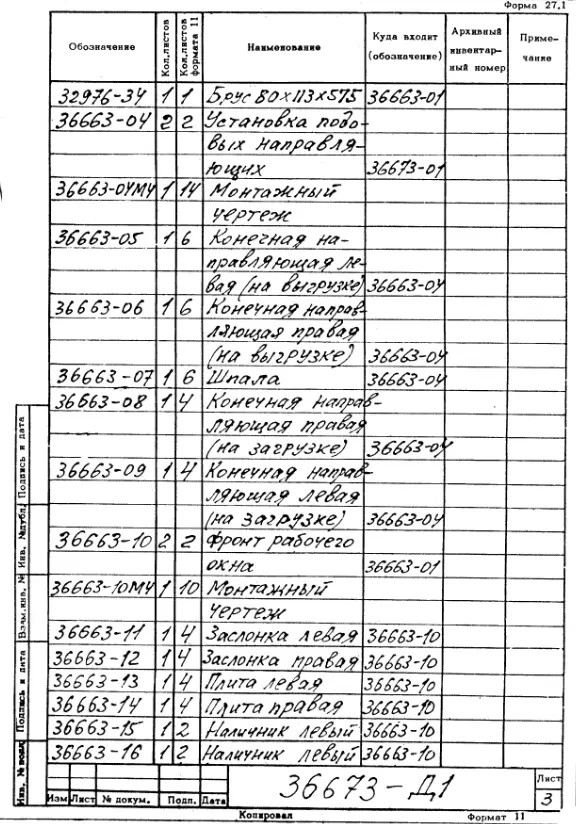 Форма 27.1
Обозначение Кол.листов Кол.листов формата 11 Наименование Куда входит (обозначение) Архивный инвентар-ный номер Приме-чание
32976-34 1 1 Брус 80х113х575 36663-01
36663-04 2 2 Установка подо-
вых направля-
ющих 36673-01
36663-04МЧ 1 14 Монтажный
чертеж
36663-05 1 6 Конечная на-
правляющая ле-
вая (на выгрузке) 36663-04
36663-06 1 6 Конечная направ-
ляющая правая
(на выгрузке) 36663-04
36663-07 1 6 Шпала 36663-04
36663-08 1 4 Конечная направ-
ляющая правая
(на загрузке) 36663-04
36663-09 1 4 Конечная направ-
ляющая левая
(на загрузке) 36663-04
36663-10 2 2 Фронт рабочего
окна 36663-01
36663-10МЧ 1 10 Монтажный
чертеж
36663-11 1 4 Заслонка левая 36663-10
36663-12 1 4 Заслонка правая 36663-10
36663-13 1 4 Плита левая 36663-10
36663-14 1 4 Плита правая 36663-10
36663-15 1 2 Наличник левый 36663-10
36663-16 1 2 Наличник левый 36663-10
Подпись и дата
Инв. №дубл.
Взам.инв. №
Подпись и дата
Инв. №подл.
36673-Д1
Лист
3
Изм Лист № докум. Подп. Дата
Копировал Формат 11